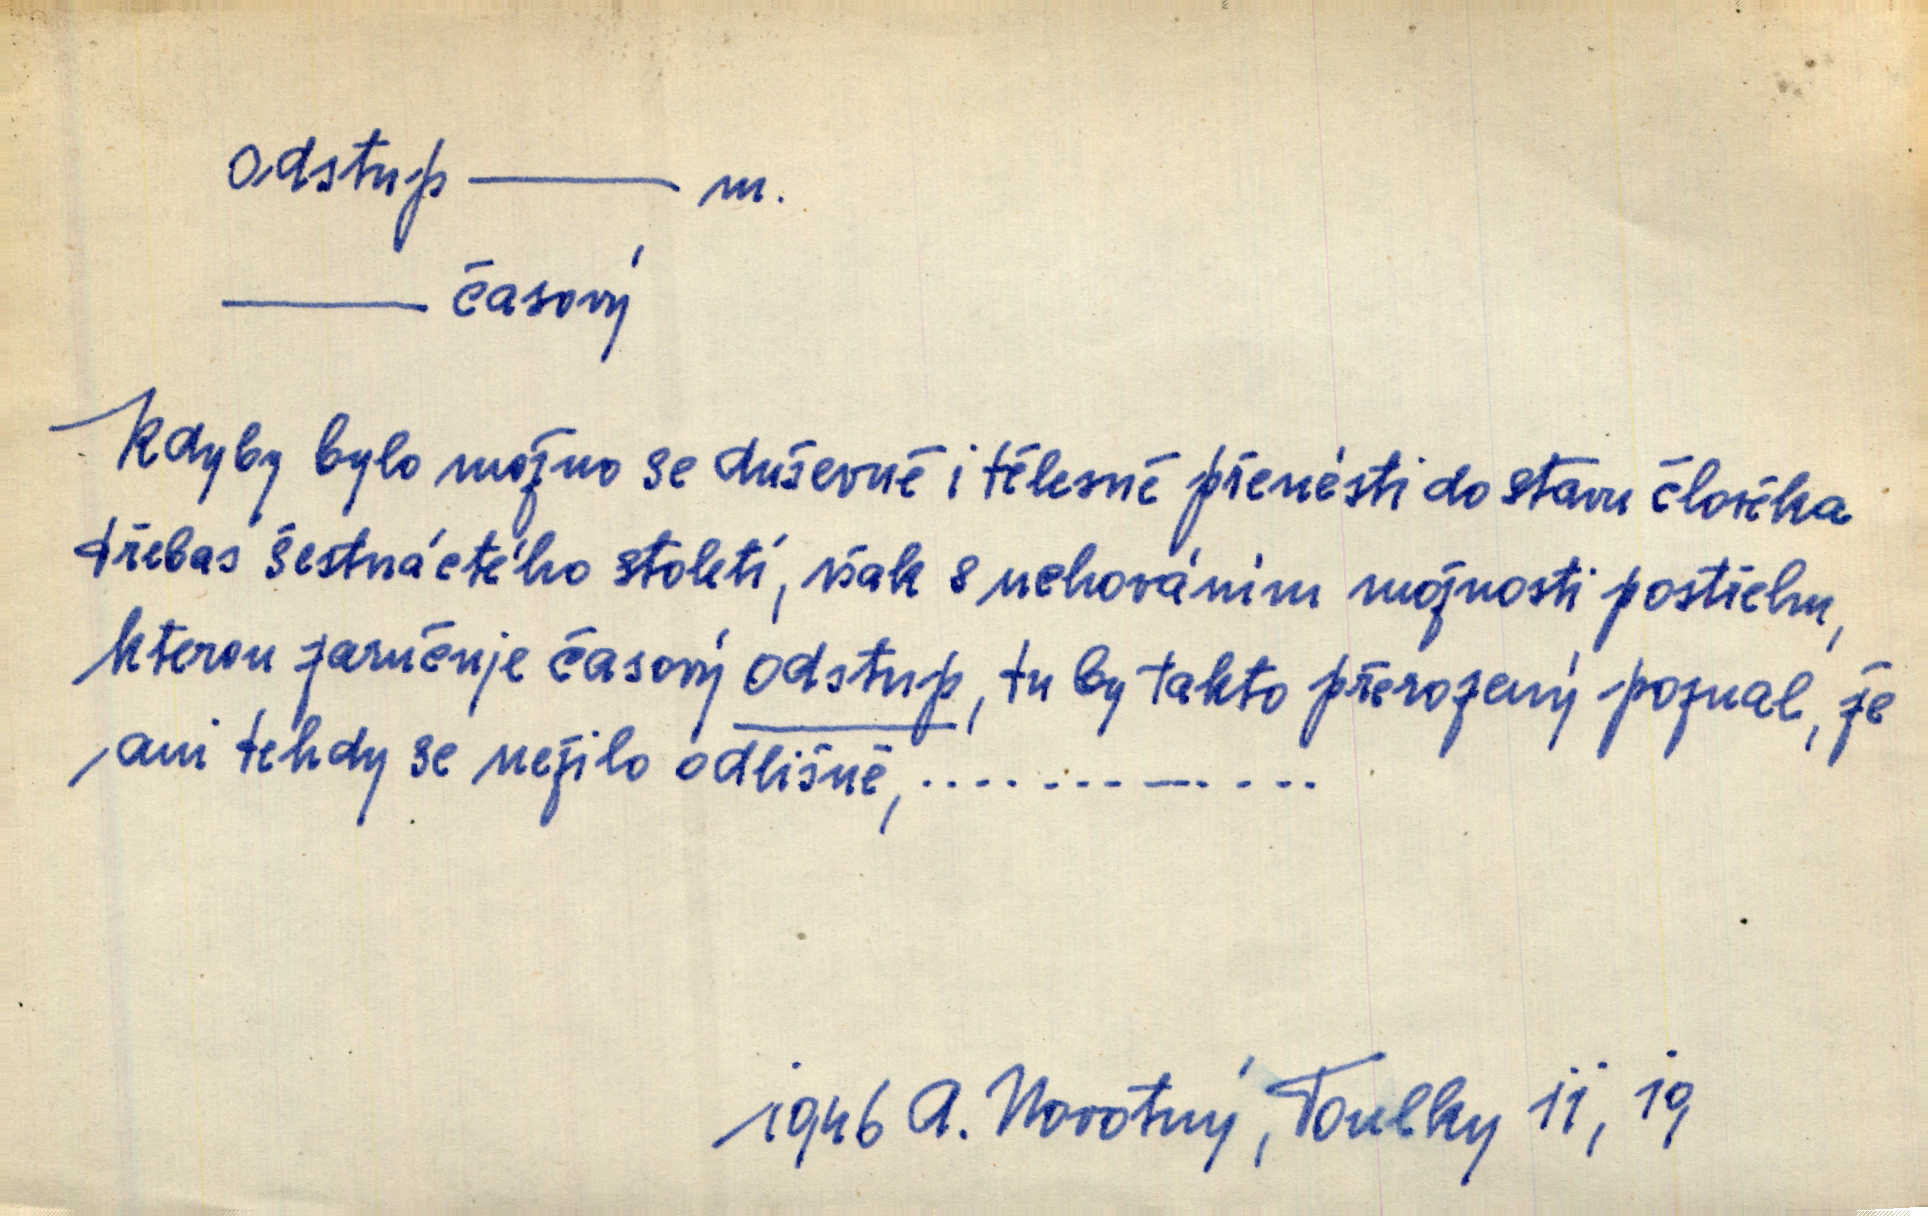 odstup ——— m.
——— časový
Kdyby bylo možno se duševně i tělesně přenésti do stavu člověka
třebas šestnáctého století, však s uchováním možnosti postřehu,
kterou zaručuje časový odstup, tu by takto přerozený poznal, že
ani tehdy se nežilo odlišně, .... --- — . - - -
1946 A. Novotný, Toulky ii, 19